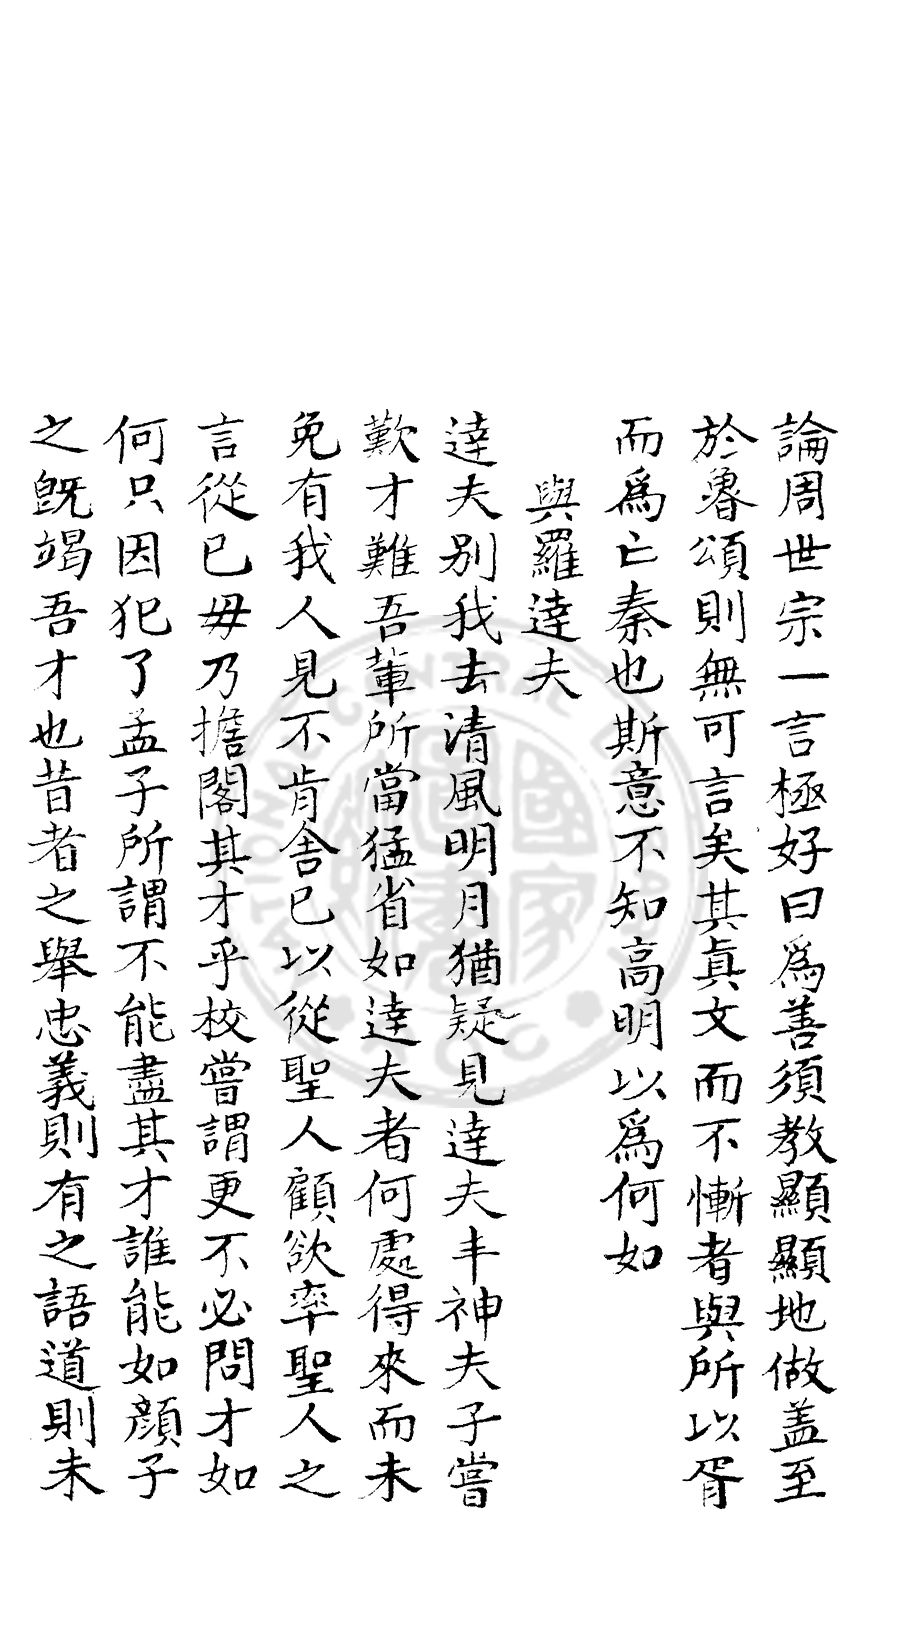 論周世宗一言極好曰爲善須教顯顯地做盖至
於魯頌則無可言矣其真文而不慚者與所以胥
而爲亡秦也斯意不知高明以爲何如
與羅達夫
達夫别我去清風明月猶疑見達夫丰神夫子嘗
歎才難吾輩所當猛省如達夫者何處得來而未
免有我人見不肯舍已以從聖人顧欲率聖人之
言從已毋乃擔閣其才乎校嘗謂更不必問才如
何只因犯了孟子所謂不能盡其才誰能如顔子
之旣竭吾才也昔者之舉忠義則有之語道則未
NATIONAL CENTRAL LIBRARY
國家圖書館